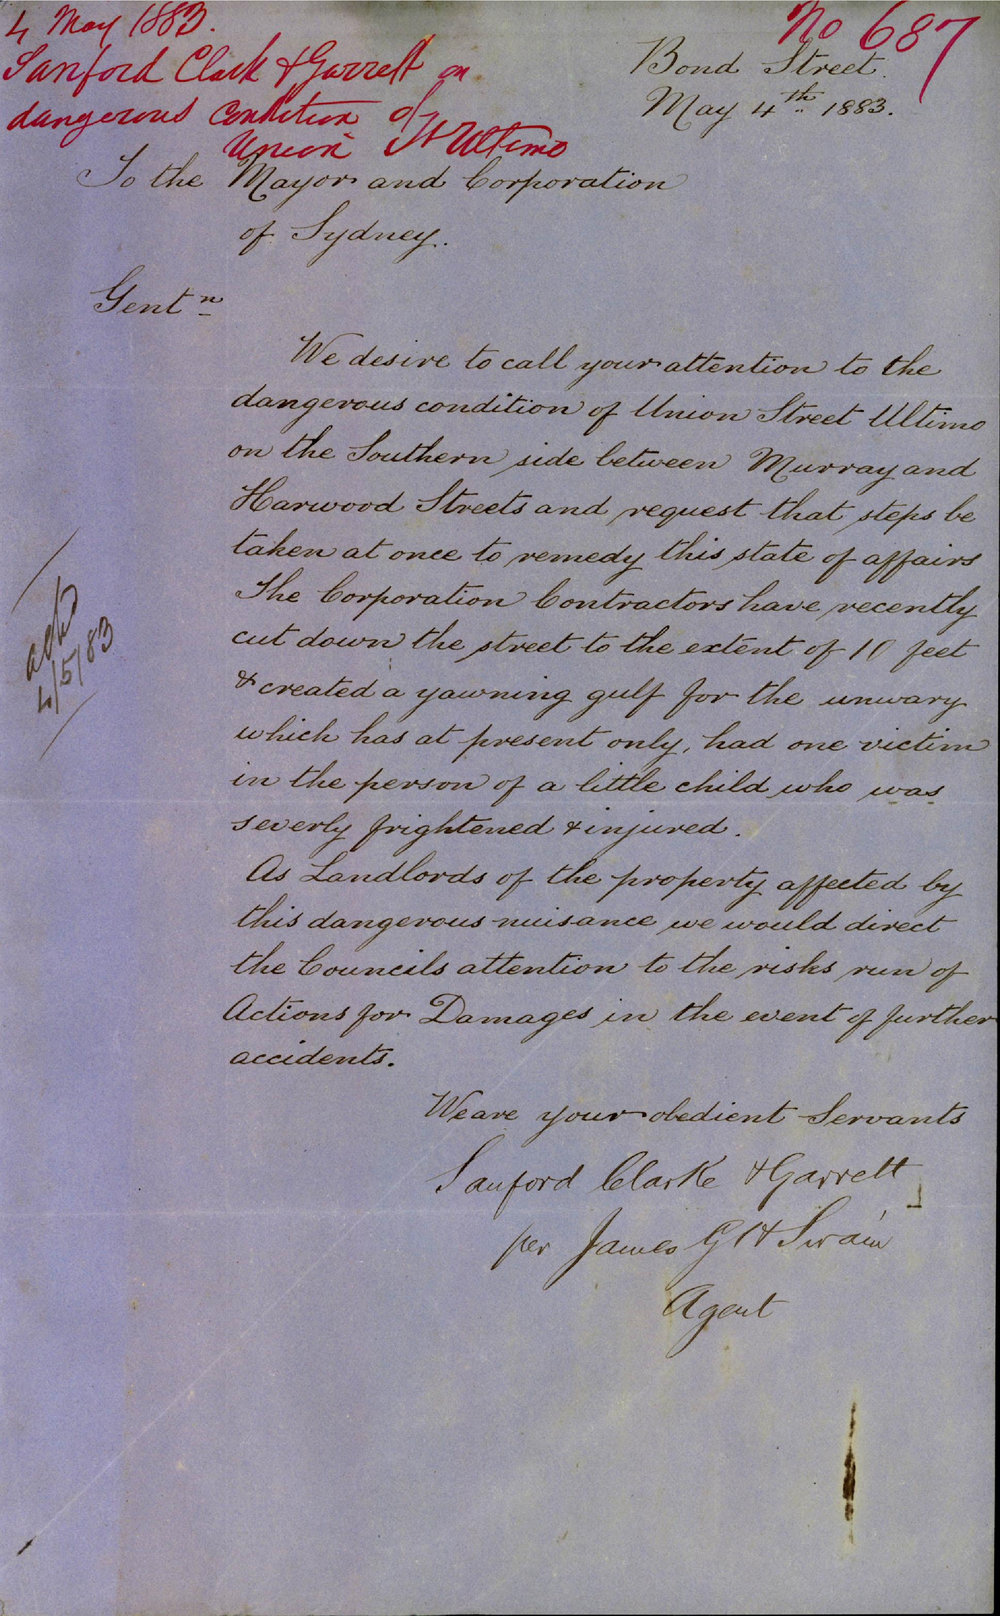 4 May 1883.
No 687
Sanford Clark & Garrett on
dangerous condition of
Union St Ultimo
Bond Street.
May 4th 1883.
To the Mayor and Corporation
of Sydney.
Gentn
We desire to call your attention to the
dangerous condition of Union Street Ultimo
on the Southern side between Murray and
Harwood Streets and request that steps be
taken at once to remedy this state of affairs
The Corporation Contractors have recently
cut down the street to the extent of 10 feet
& created a yawning gulf for the unwary
which has at present only, had one victim
in the person of a little child who was
severly frightened & injured.
As Landlords of the property affected by
this dangerous nuisance we would direct
the Councils attention to the risks run of
Actions for Damages in the event of further
accidents.
We are your obedient Servants
Sanford Clarke & Garrett
per James G H Swain
Agent
ackd
4/5/83